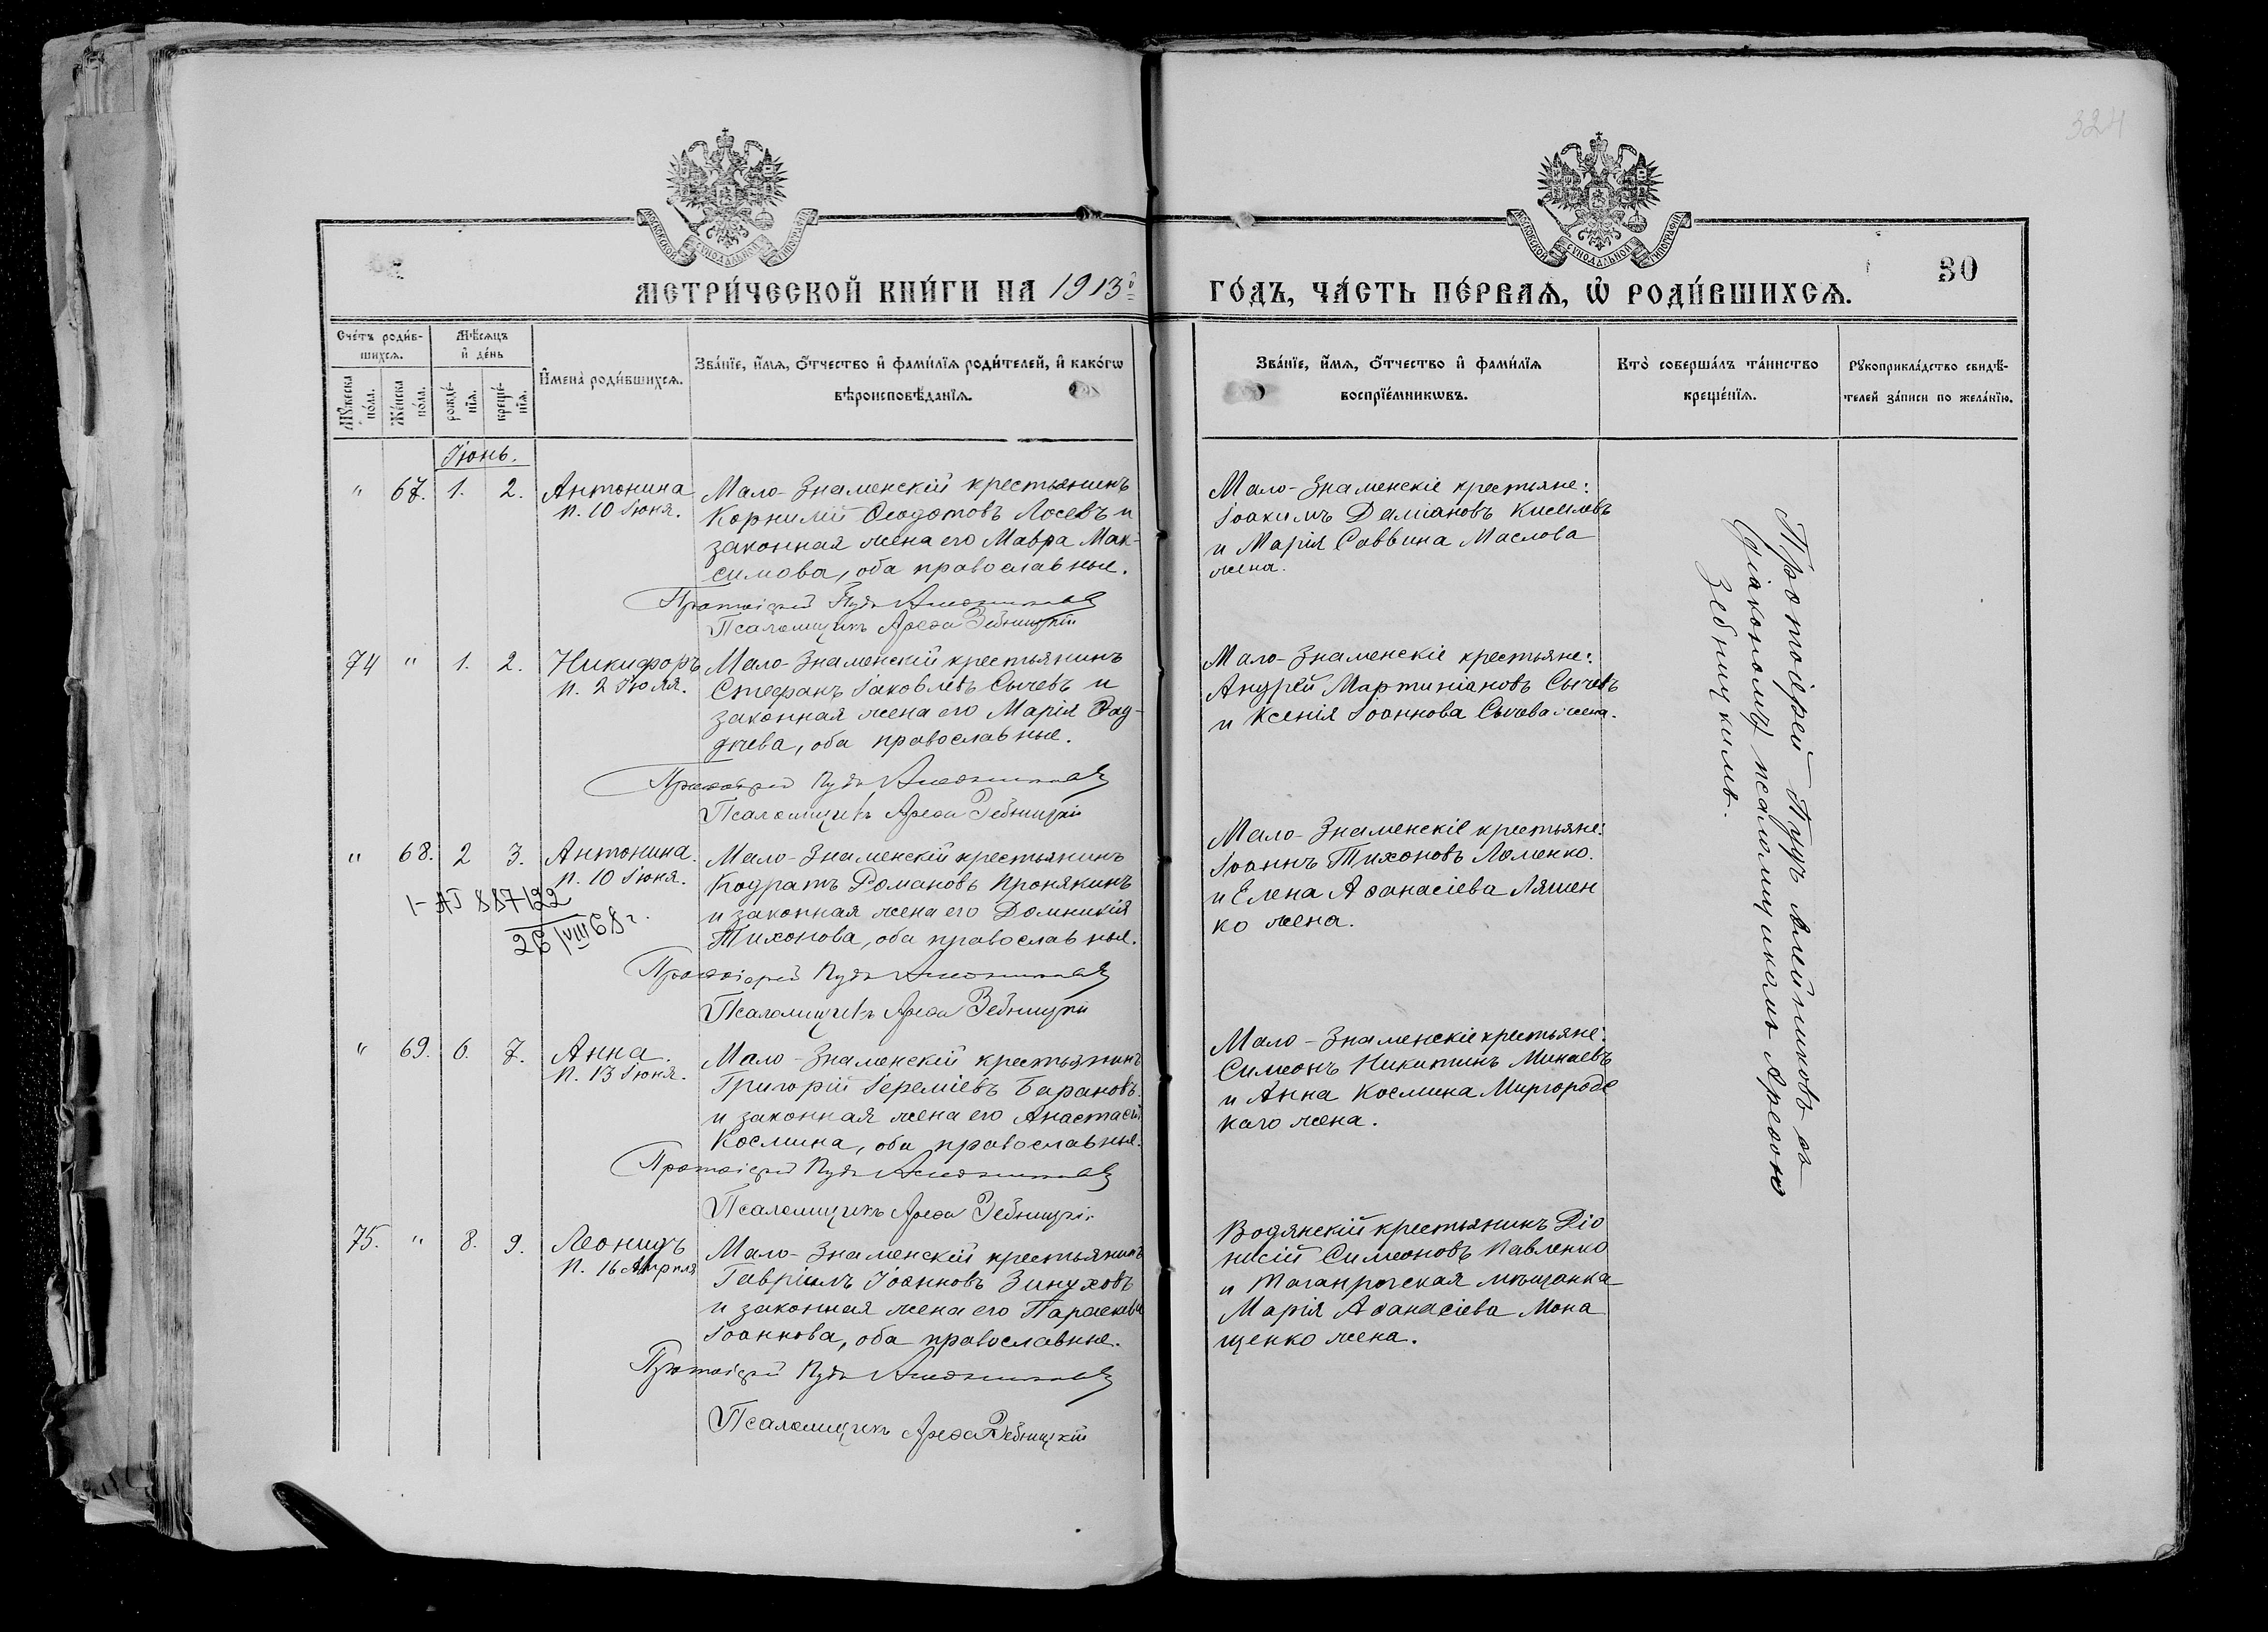 324
МОСКОВСКОЙ СѴНОДАЛЬНОЙ ТИПОГРАФІИ
МОСКОВСКОЙ СѴНОДАЛЬНОЙ ТИПОГРАФІИ
МЕТРИ́ЧЕСКОЙ КНИ́ГИ НА 1913й
ГО́ДЪ, ЧА́СТЬ ПЕ́РВАѦ, Ѡ҆ РОДИ́ВШИХСѦ.
30
Сче́тъ роди́в-
шихсѧ.
Мѣ́сѧцъ
и҆ де́нь
Мꙋ́жеска
по́ла.
Же́нска
по́ла.
рожде́-
нїѧ.
креще́-
нїѧ.
И҆мена̀ роди́вшихсѧ.
Зва́нїе, и҆́мѧ, ѻ҆́тчество и҆ фами́лїѧ роди́телей, и҆ како́гѡ
вѣроисповѣ́данїѧ.
Зва́нїе, и҆́мѧ, ѻ҆́тчество и҆ фами́лїѧ
воспрїе́мникѡвъ.
Кто̀ соверша́лъ та́инство
креще́нїѧ.
Рꙋкоприкла́дство свидѣ́-
телей за́писи по жела́нїю.
Іюнь.
" 67. 1. 2. Антонина
п. 10 Іюня.
Мало-Знаменскій крестьянинъ
Корнилій Ѳеодотовъ Лосевъ и
законная жена его Мавра Мак-
симова, оба православные.
Протоіерей Пудъ Алейниковъ
Псаломщикъ Арефа Зебницкій
Мало-Знаменскіе крестьяне:
Іоакимъ Даміановъ Киселевъ
и Марія Саввина Маслова
жена.
74 " 1. 2. Никифоръ
п. 2 Іюля.
Мало-Знаменскій крестьянинъ
Стефанъ Іаковлевъ Сычевъ и
законная жена его Марія Фад-
деева, оба православные.
Протоіерей Пудъ Алейниковъ
Псаломщикъ Арефа Зебницкій
Мало-Знаменскіе крестьяне:
Андрей Мартиніановъ Сычевъ
и Ксенія Іоаннова Сычева жена.
" 68. 2 3. Антонина.
п. 10 Іюня.
1-АЈ 887122
26/VIII 68 г.
Мало-Знаменскій крестьянинъ
Кодратъ Романовъ Пронякинъ
и законная жена его Домникія
Тихонова, оба православные.
Протоіерей Пудъ Алейниковъ
Псаломщикъ Арефа Зебницкій
Мало-Знаменскіе крестьяне:
Іоаннъ Тихоновъ Ломенко.
и Елена Аѳанасіева Ляшен
ко жена.
" 69. 6. 7. Анна.
п. 13 Іюня.
Мало-Знаменскій крестьянинъ
Григорій Іереміевъ Барановъ
и законная жена его Анастасія
Космина, оба православные.
Протоіерей Пудъ Алейниковъ
Псаломщикъ Арефа Зебницкій
Мало-Знаменскіе крестьяне:
Симеонъ Никитинъ Минаевъ
и Анна Космина Миргородс
каго жена.
75. " 8. 9. Леонидъ
п. 16 Апреля
Мало-Знаменскій крестьянинъ
Гавріилъ Іоанновъ Зинуховъ
и законная жена его Параскева
Іоаннова, оба православные.
Протоіерей Пудъ Алейниковъ
Псаломщикъ Арефа Зебницкій
Водянскій крестьянинъ Діо
нисій Симеоновъ Павленко
и Таганрогская мѣщанка
Марія Аѳанасіева Мона
щенко жена.
Протоіерей Пудъ Алейниковъ съ
діакономъ псаломщикомъ Арефою
Зебницкимъ.